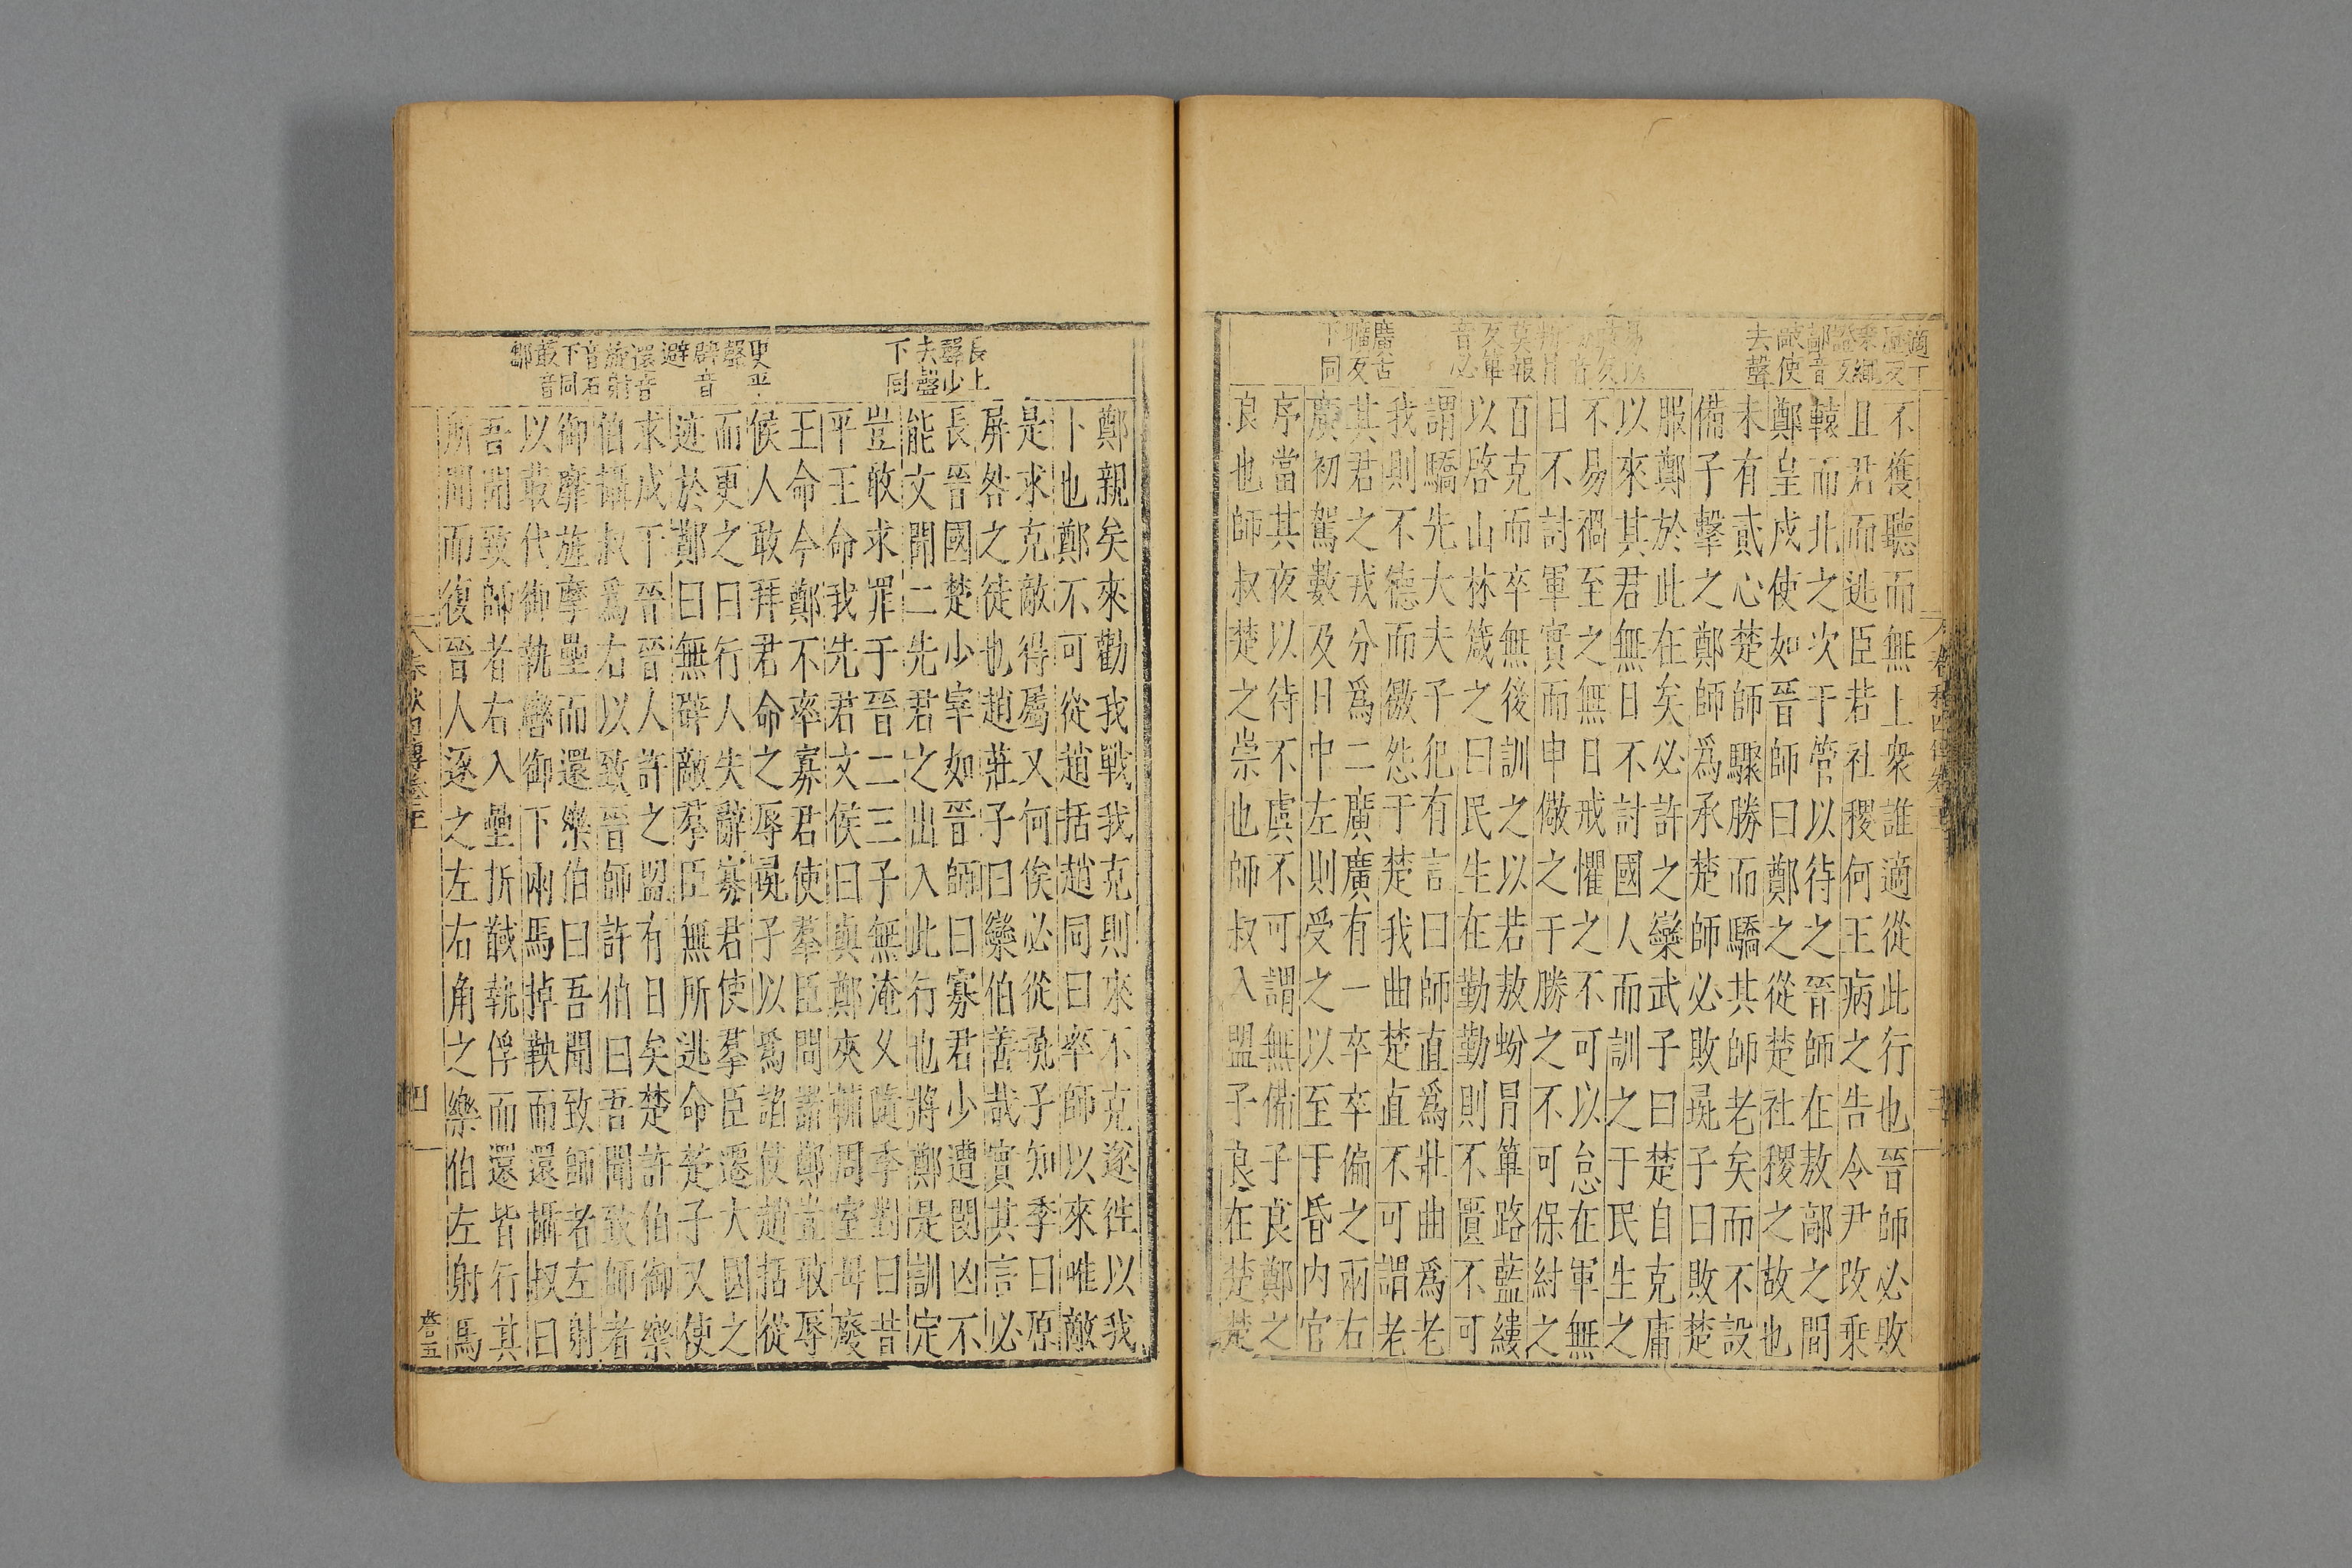 不獲聽而無上衆誰適從此行也晉師必敗
且君而逃臣若社稷何王病之告令尹改乘
轅而北之次于管以待之晉師在敖鄗之間
鄭皇戌使如晉師曰鄭之從楚社稷之故也
未有貳心楚師驟勝而驕其師老矣而不設
備子擊之鄭師爲承楚師必敗彘子曰敗楚
服鄭於此在矣必許之欒武子曰楚自克庸
以來其君無日不討國人而訓之于民生之
不易禍至之無日戒懼之不可以怠在軍無
日不討軍實而申儆之于勝之不可保紂之
百克而卒無後訓之以若敖蚡冒篳路藍縷
以啓山林箴之曰民生在勤勤則不匱不可
謂驕先大夫子犯有言曰師直爲壯曲爲老
我則不德而徼怨于楚我曲楚直不可謂老
其君之戎分爲二廣廣有一卒卒偏之兩右
廣初駕數及日中左則受之以至于昏內官
序當其夜以待不虞不可謂無備子良鄭之
良也師叔楚之崇也師叔入盟子良在楚楚
鄭親矣來勸我戰我克則來不克遂往以我
卜也鄭不可從趙括趙同曰率師以來唯敵
是求克敵得屬又何俟必從彘子知季曰原
屏咎之徒也趙莊子曰欒伯善哉實其言必
長晉國楚少宰如晉師曰寡君少遭閔凶不
能文聞二先君之出入此行也將鄭是訓定
豈敢求罪于晉二三子無淹久隨季對曰昔
平王命我先君文侯曰與鄭夾輔周室毋廢
王命今鄭不率寡君使羣臣問諸鄭豈敢辱
候人敢拜君命之辱彘子以爲諂使趙括從
而更之曰行人失辭寡君使羣臣遷大國之
迹於鄭曰無辟敵羣臣無所逃命楚子又使
求成于晉晉人許之盟有日矣楚許伯御樂
伯攝叔爲右以致晉師許伯曰吾聞致師者
御靡旌摩壘而還樂伯曰吾聞致師者左射
以菆代御執轡御下兩馬掉鞅而還攝叔曰
吾聞致師者右入壘折馘執俘而還皆行其
所聞而復晉人逐之左右角之樂伯左射馬
長上
聲少
去聲
下同
更平
聲
辟音
避
還音
旋射
音石
下同
菆音
鄒
四